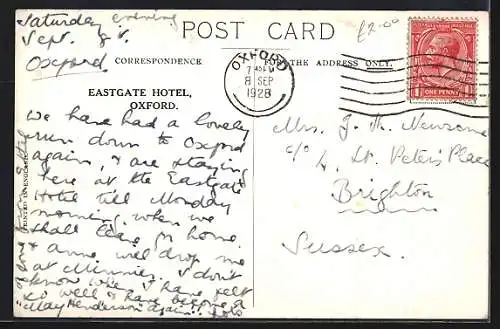 Saturday evening
Sept. 8th.
Oxford.
POST CARD
£2-00
CORRESPONDENCE
FOR THE ADDRESS ONLY.
EASTGATE HOTEL,
OXFORD.
OXFORD
8 SEP
1928
ONE PENNY
We have had a lovely
run down to Oxford
again, & are staying
here at the Eastgate
Hotel till Monday
morning, when we
shall leave for home.
& Anne will drop me
at Minnie's. I don't
know when I have felt
so well & have become a
"May Henderson again"
Mrs. J. M. Newsome
c/o 4, St. Peter's Place
Brighton
Sussex.